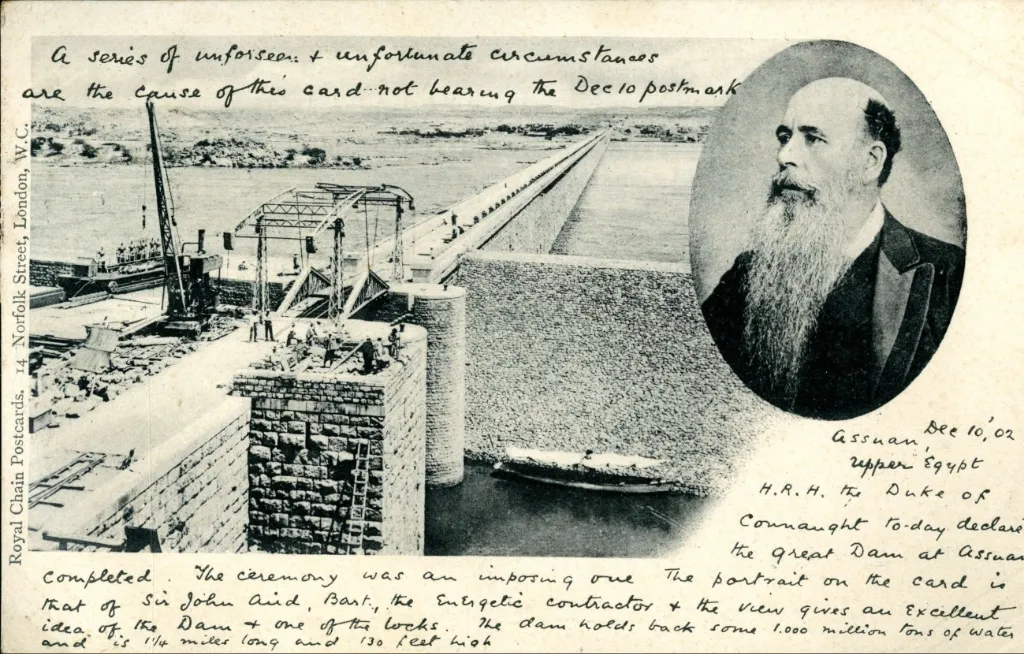 A series of unforseen & unfortunate circumstances
are the cause of this card not bearing the Dec 10 postmark
Royal Chain Postcards. 14 Norfolk Street, London, W.C.
Assuan, Dec 10, '02
Upper Egypt
H.R.H. the Duke of
Connaught to-day declare
the great Dam at Assuan
completed. The ceremony was an imposing one The portrait on the card is
that of Sir John Aird, Bart., the Energetic contractor & the view gives an Excellent
idea of the Dam & one of the locks. The dam holds back some 1.000 million tons of water
and is 1¼ miles long and 130 feet high